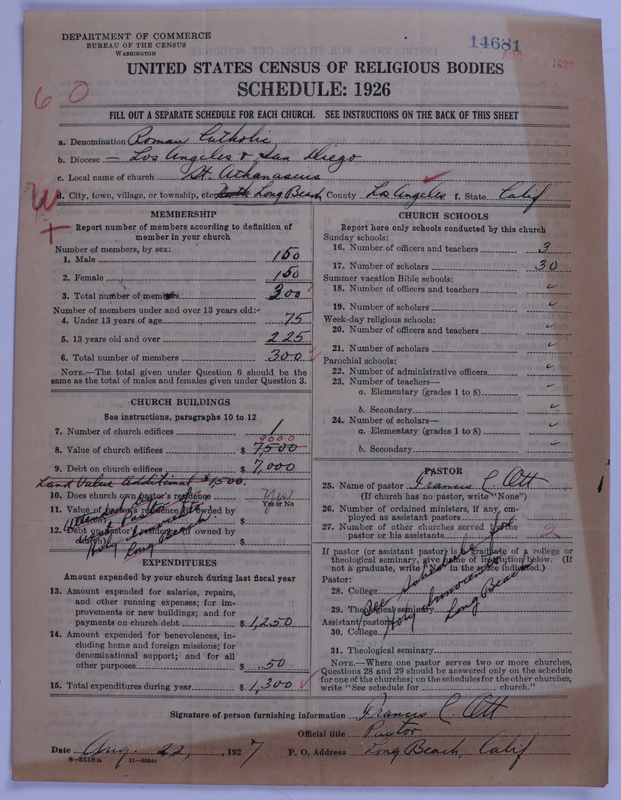 DEPARTMENT OF COMMERCE
BUREAU OF THE CENSUS
WASHINGTON
14681
UNITED STATES CENSUS OF RELIGIOUS BODIES
SCHEDULE: 1926
60
FILL OUT A SEPARATE SCHEDULE FOR EACH CHURCH. SEE INSTRUCTIONS ON THE BACK OF THIS SHEET
a. Denomination Roman Catholic
b. Diocese – Los Angeles & San Diego
c. Local name of church St. Athanasius
d. City, town, village, or township, etc. North Long Beach County Los Angeles f. State Calif
MEMBERSHIP
Report number of members according to definition of
member in your church
Number of members, by sex:
1. Male 150
2. Female 150
3. Total number of members 300
Number of members under and over 13 years old:-
4. Under 13 years of age 75
5. 13 years old and over 225
6. Total number of members 300
NOTE.—The total given under Question 6 should be the
same as the total of males and females given under Question 3.
CHURCH BUILDINGS
See instructions, paragraphs 10 to 12
7. Number of church edifices 1
9000
8. Value of church edifices $ 7500
9. Debt on church edifices $ 7,000
Land Value Additional $1,500.
10. Does church own pastor's residence yes
Yes or No
11. Value of pastor's residence (if owned by
church) $
12. Debt on pastor's residence (if owned by
church) $
Holy Innocents
Long Beach
EXPENDITURES
Amount expended by your church during last fiscal year
13. Amount expended for salaries, repairs,
and other running expenses; for im-
provements or new buildings; and for
payments on church debt $ 1,250
14. Amount expended for benevolences, in-
cluding home and foreign missions; for
denominational support; and for all
other purposes $ 50
15. Total expenditures during year $ 1,300
CHURCH SCHOOLS
Report here only schools conducted by this church
Sunday schools:
16. Number of officers and teachers 3
17. Number of scholars 30
Summer vacation Bible schools:
18. Number of officers and teachers
19. Number of scholars
Week-day religious schools:
20. Number of officers and teachers
21. Number of scholars
Parochial schools:
22. Number of administrative officers
23. Number of teachers—
a. Elementary (grades 1 to 8)
b. Secondary
24. Number of scholars—
a. Elementary (grades 1 to 8)
b. Secondary
PASTOR
25. Name of pastor Francis C. Ott
(If church has no pastor, write "None")
26. Number of ordained ministers, if any, em-
ployed as assistant pastors
27. Number of other churches served by the
pastor or his assistants 2
If pastor (or assistant pastor) is a graduate of a college or
theological seminary, give name of institution below. (If
not a graduate, write in the space indicated.)
Pastor:
28. College
29. Theological seminary
Assistant pastor:
30. College
See Schedule for
Holy Innocents
Long Beach
31. Theological seminary
NOTE.—Where one pastor serves two or more churches,
Questions 28 and 29 should be answered only on the schedule
for one of the churches; on the schedules for the other churches,
write "See schedule for church."
Signature of person furnishing information Francis C. Ott
Official title Pastor
Date Aug. 22, , 1927 P. O. Address Long Beach, Calif